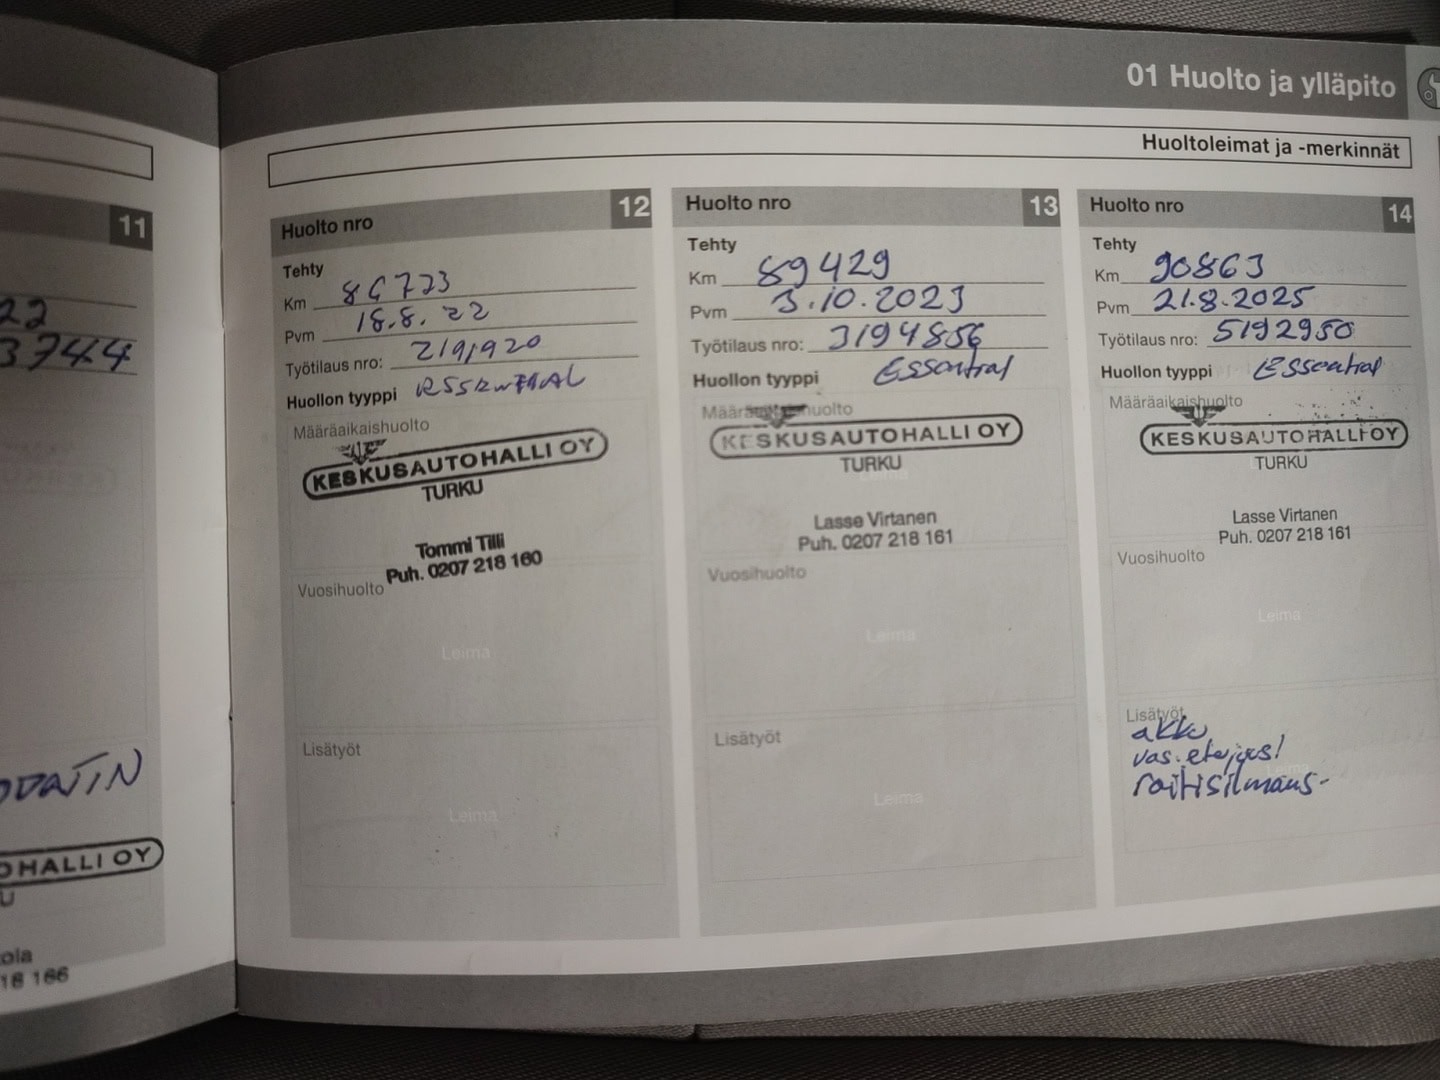 01 Huolto ja ylläpito
Huoltoleimat ja -merkinnät
11
22
3744
OHALLI OY
18 166
Huolto nro 12
Tehty
Km 86773
Pvm 18.8. 22
Työtilaus nro: 2191920
Huollon tyyppi
Määräaikaishuolto
KESKUSAUTOHALLI OY
TURKU
Tommi Tilli
Puh. 0207 218 160
Vuosihuolto
Leima
Lisätyöt
Leima
Huolto nro 13
Tehty
Km 89429
Pvm 3.10.2023
Työtilaus nro: 3194856
Huollon tyyppi Essential
Määräaikaishuolto
KESKUSAUTOHALLI OY
TURKU
Leima
Lasse Virtanen
Puh. 0207 218 161
Vuosihuolto
Leima
Lisätyöt
Leima
Huolto nro 14
Tehty
Km 90863
Pvm 21.8.2025
Työtilaus nro: 5192950
Huollon tyyppi Essential
Määräaikaishuolto
KESKUSAUTOHALLI OY
TURKU
Lasse Virtanen
Puh. 0207 218 161
Vuosihuolto
Leima
Lisätyöt
akku
vas. etujous!
raitisilmaus-
Leima